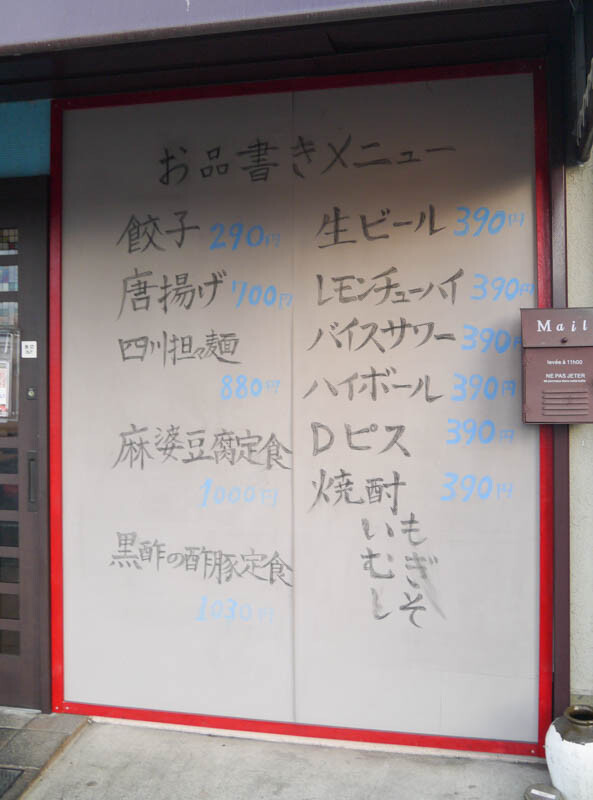 お品書きメニュー
餃子 290円
唐揚げ 700円
四川担々麺
880円
麻婆豆腐定食
1000円
黒酢の酢豚定食
1030円
生ビール 390円
レモンチューハイ 390円
バイスサワー 390円
ハイボール 390円
Dピス 390円
焼酎 390円
いも
むぎ
しそ
Mail
levée à 11h00
NE PAS JETER